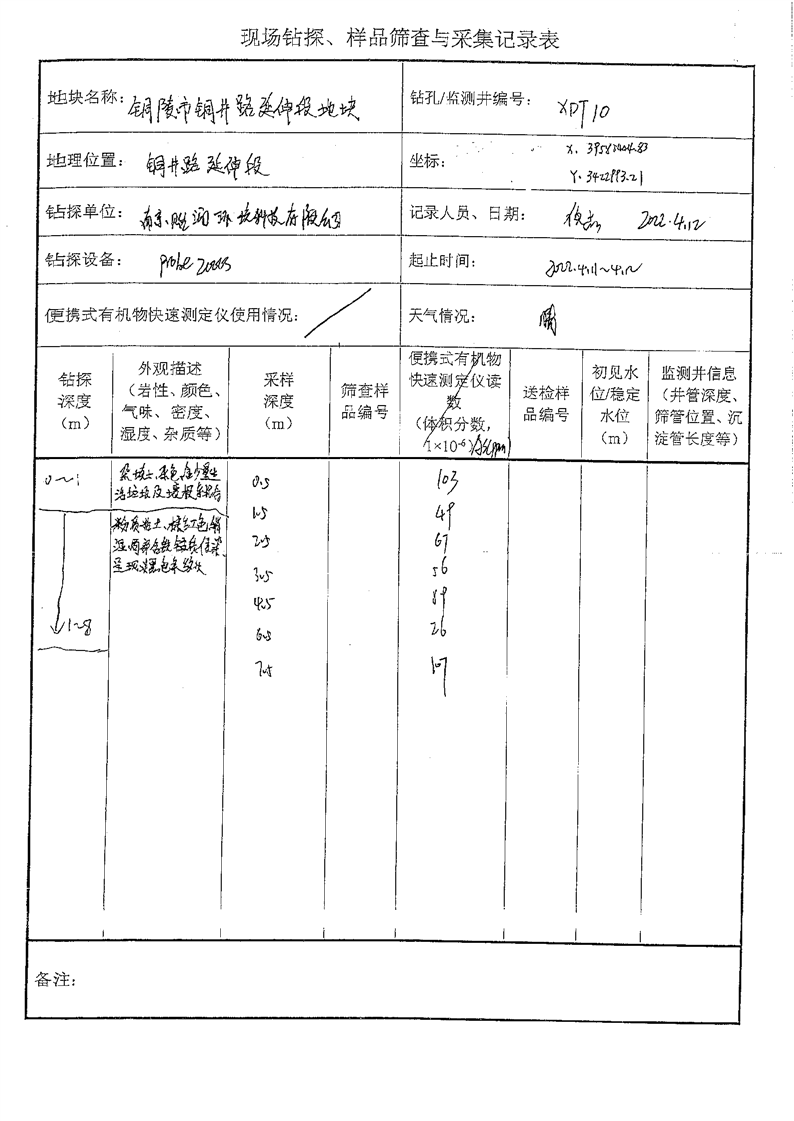 现场钻探、样品筛查与采集记录表
地块名称：铜陵市铜井路延伸段地块
钻孔/监测井编号： XDT10
地理位置： 铜井路延伸段
坐标： X. 395
Y. 3422893.21
钻探单位：南京 环境科技有限公司
记录人员、日期： 2022.4.12
钻探设备： Probe 2000S
起止时间： 2022.4.11~4.12
便携式有机物快速测定仪使用情况： /
天气情况： 晴
钻探
深度
（m）
外观描述
（岩性、颜色、
气味、密度、
湿度、杂质等）
采样
深度
（m）
筛查样
品编号
便携式有机物
快速测定仪读
数
（体积分数，
1×10⁻⁶）/As(ppm)
送检样
品编号
初见水
位/稳定
水位
（m）
监测井信息
（井管深度、
筛管位置、沉
淀管长度等）
0~1
杂填土、杂色、含少量生
活垃圾及
0.5 103
1.5 49
粉质粘土、棕红色、稍
湿、
2.5 67
3.5 56
4.5 89
1~8
6.5 26
7.5 107
备注：